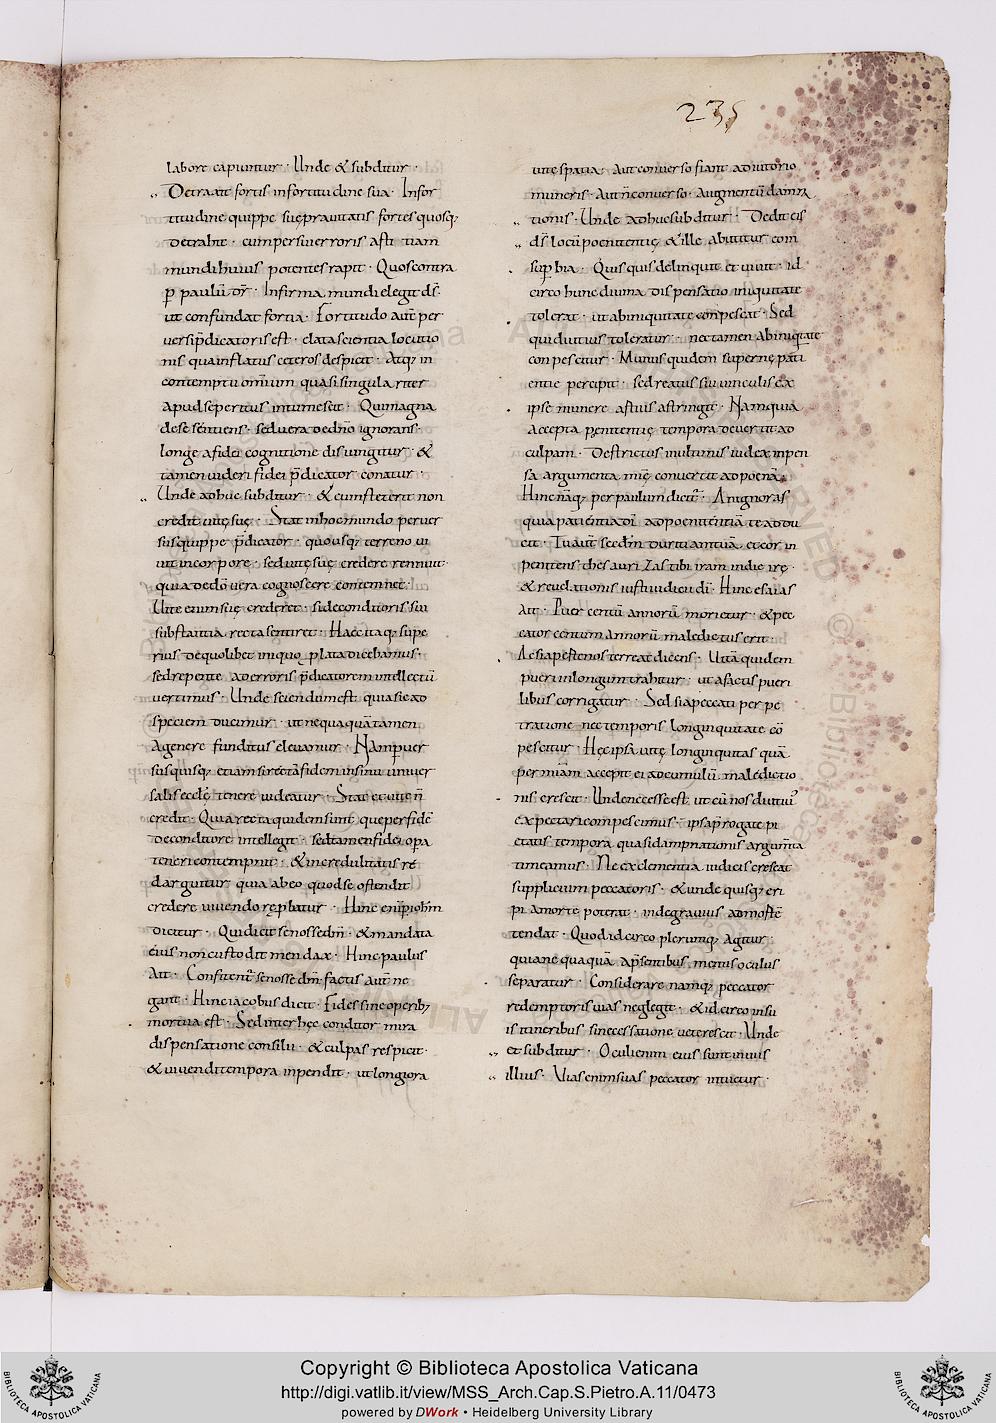 235
labore capiuntur · Unde & subditur ·
Detraxit fortis infortitudine sua · Infor
titudine quippe suę prauitatis fortes quosq;
detrahit · cum persui erroris astutiam
mundi huius potentes rapit · Quos contra
p paulū dr̄ · Infirma mundi elegit ds̄ ·
ut confundat fortia · Fortitudo aut̄ per
uersi p̄dicatoris est · elata scientia locutio
nis qua inflatus ceteros despicit · Atq; in
contemptu omnium quasi singulariter
apud seperitus intumescit · Qui magna
dese sentiens · sed uera dedn̄o ignorans ·
longe a fidei cognitione disiungitur · &
tamen uideri fidei p̄dicator conatur ·
Unde adhuc subditur · & cum steterit non
credit uitę suę · Stat inhoc mundo peruer
sus quippe p̄dicator · quousq; terreno ui
uit incorpore · sed uitę suę credere rennuit ·
quia dedō uera cognoscere contemnet ·
Uite enim suę crederet · si deconditoris sui
substantia recta sentiret · Haec itaq; supe
rius dequolibet iniquo platа dicebamus ·
sed repente ad erroris p̄dicatorem intellectū
uertimus · Unde sciendum est · quia sic ad
speciem ducimur · ut nequaquā tamen
agenere funditus eleuamur · Nam peruer
sus quisq; etiam si rectā fidem insinu uniuer
salis ecclę tenere uideatur · Stat et uite n̄
credit · Quia recta quidem sunt que per fidē
deconditore intellegit · sed tamen fidei opa
teneri contempnit · & incredulitatis re
darguitur quia ab eo quod se ostendit
credere uiuendo replatur · Hinc enī p iohm̄
dicitur · Qui dicit se nosse dm̄ · & mandata
eius non custodit mendax · Hinc paulus
ait · Confitent' se nosse dm̄ factis aut̄ ne
gant · Hinc iacobus dicit · Fides sine operib;
mortua est · Sed inter hęc conditor mira
dispensatione consilii · & culpas respicit ·
& uiuendi tempora inpendit · ut longiora
uitę spatia · aut conuerso fiant adiutorio
muneris · Aut n̄ conuerso · augmentū damna
tionis · Unde adhuc subditur · Dedit eis
ds̄ locū poenitentię & ille abutitur eom
supbia · Quisquis delinquit et uiuit · id
circo hunc diuina dispensatio iniquitate
tolerat · ut ab iniquitate conpescat · Sed
qui diutius toleratur · nec tamen ab iniquitate
conpescitur · Munus quidem supernę pati
entię percipit · sed reatus sui uinculis ex
ipso munere astius astringit · Nam quia
accepta pęnitentię tempora deuertit ad
culpam · Destrictus inultimis iudex inpen
sa argumenta mię conuertit ad poenā ·
Hinc nāq; per paulum dicit' · An ignoras
quia patientia dī ad poenitentiā te addu
cit · Tu aut̄ secdm̄ duritiā tuā & cor in
penitens thesaurizas tibi iram indie irę ·
& reuelationis iusti iudicii dī · Hinc esaias
ait · Puer centū annorū morietur · & pec
cator centum annorū maledictus erit ·
Ac si aptę nos terreat dicens · Uita quidem
pueri inlongum trahitur · ut a factis pueri
libus corrigatur · Sed si a peccati per pe
tratione nec temporis longinquitate cō
pescitur · Hęc ipsa uitę longinquitas quā
per miām accepit ei ad cumulū maledictio
nis crescit · Unde necesse est ut cū nos diutius
expectari conspicimus · ipsa p̄rogate pi
etatis tempora quasi dampnationis argumta
timeamus · Ne ex clementia iudicis crescat
supplicium peccatoris · & unde quisq; eri
pi a morte poterat · inde grauius ad mortē
tendat · Quod idcirco plerumq; agitur ·
quia ne quaquā ap̄sentibus mentis oculus
separatur · Considerare namq; peccator
redemptoris uias neglegit · & idcirco in su
is itineribus sine cessatione ueterescit · Unde
et subditur · Oculi enim eius sunt in uiis
illius · Uias enim suas peccator intuetur ·
Copyright © Biblioteca Apostolica Vaticana
http://digi.vatlib.it/view/MSS_Arch.Cap.S.Pietro.A.11/0473
powered by DWork • Heidelberg University Library
BIBLIOTECA APOSTOLICA VATICANA
BIBLIOTECA APOSTOLICA VATICANA